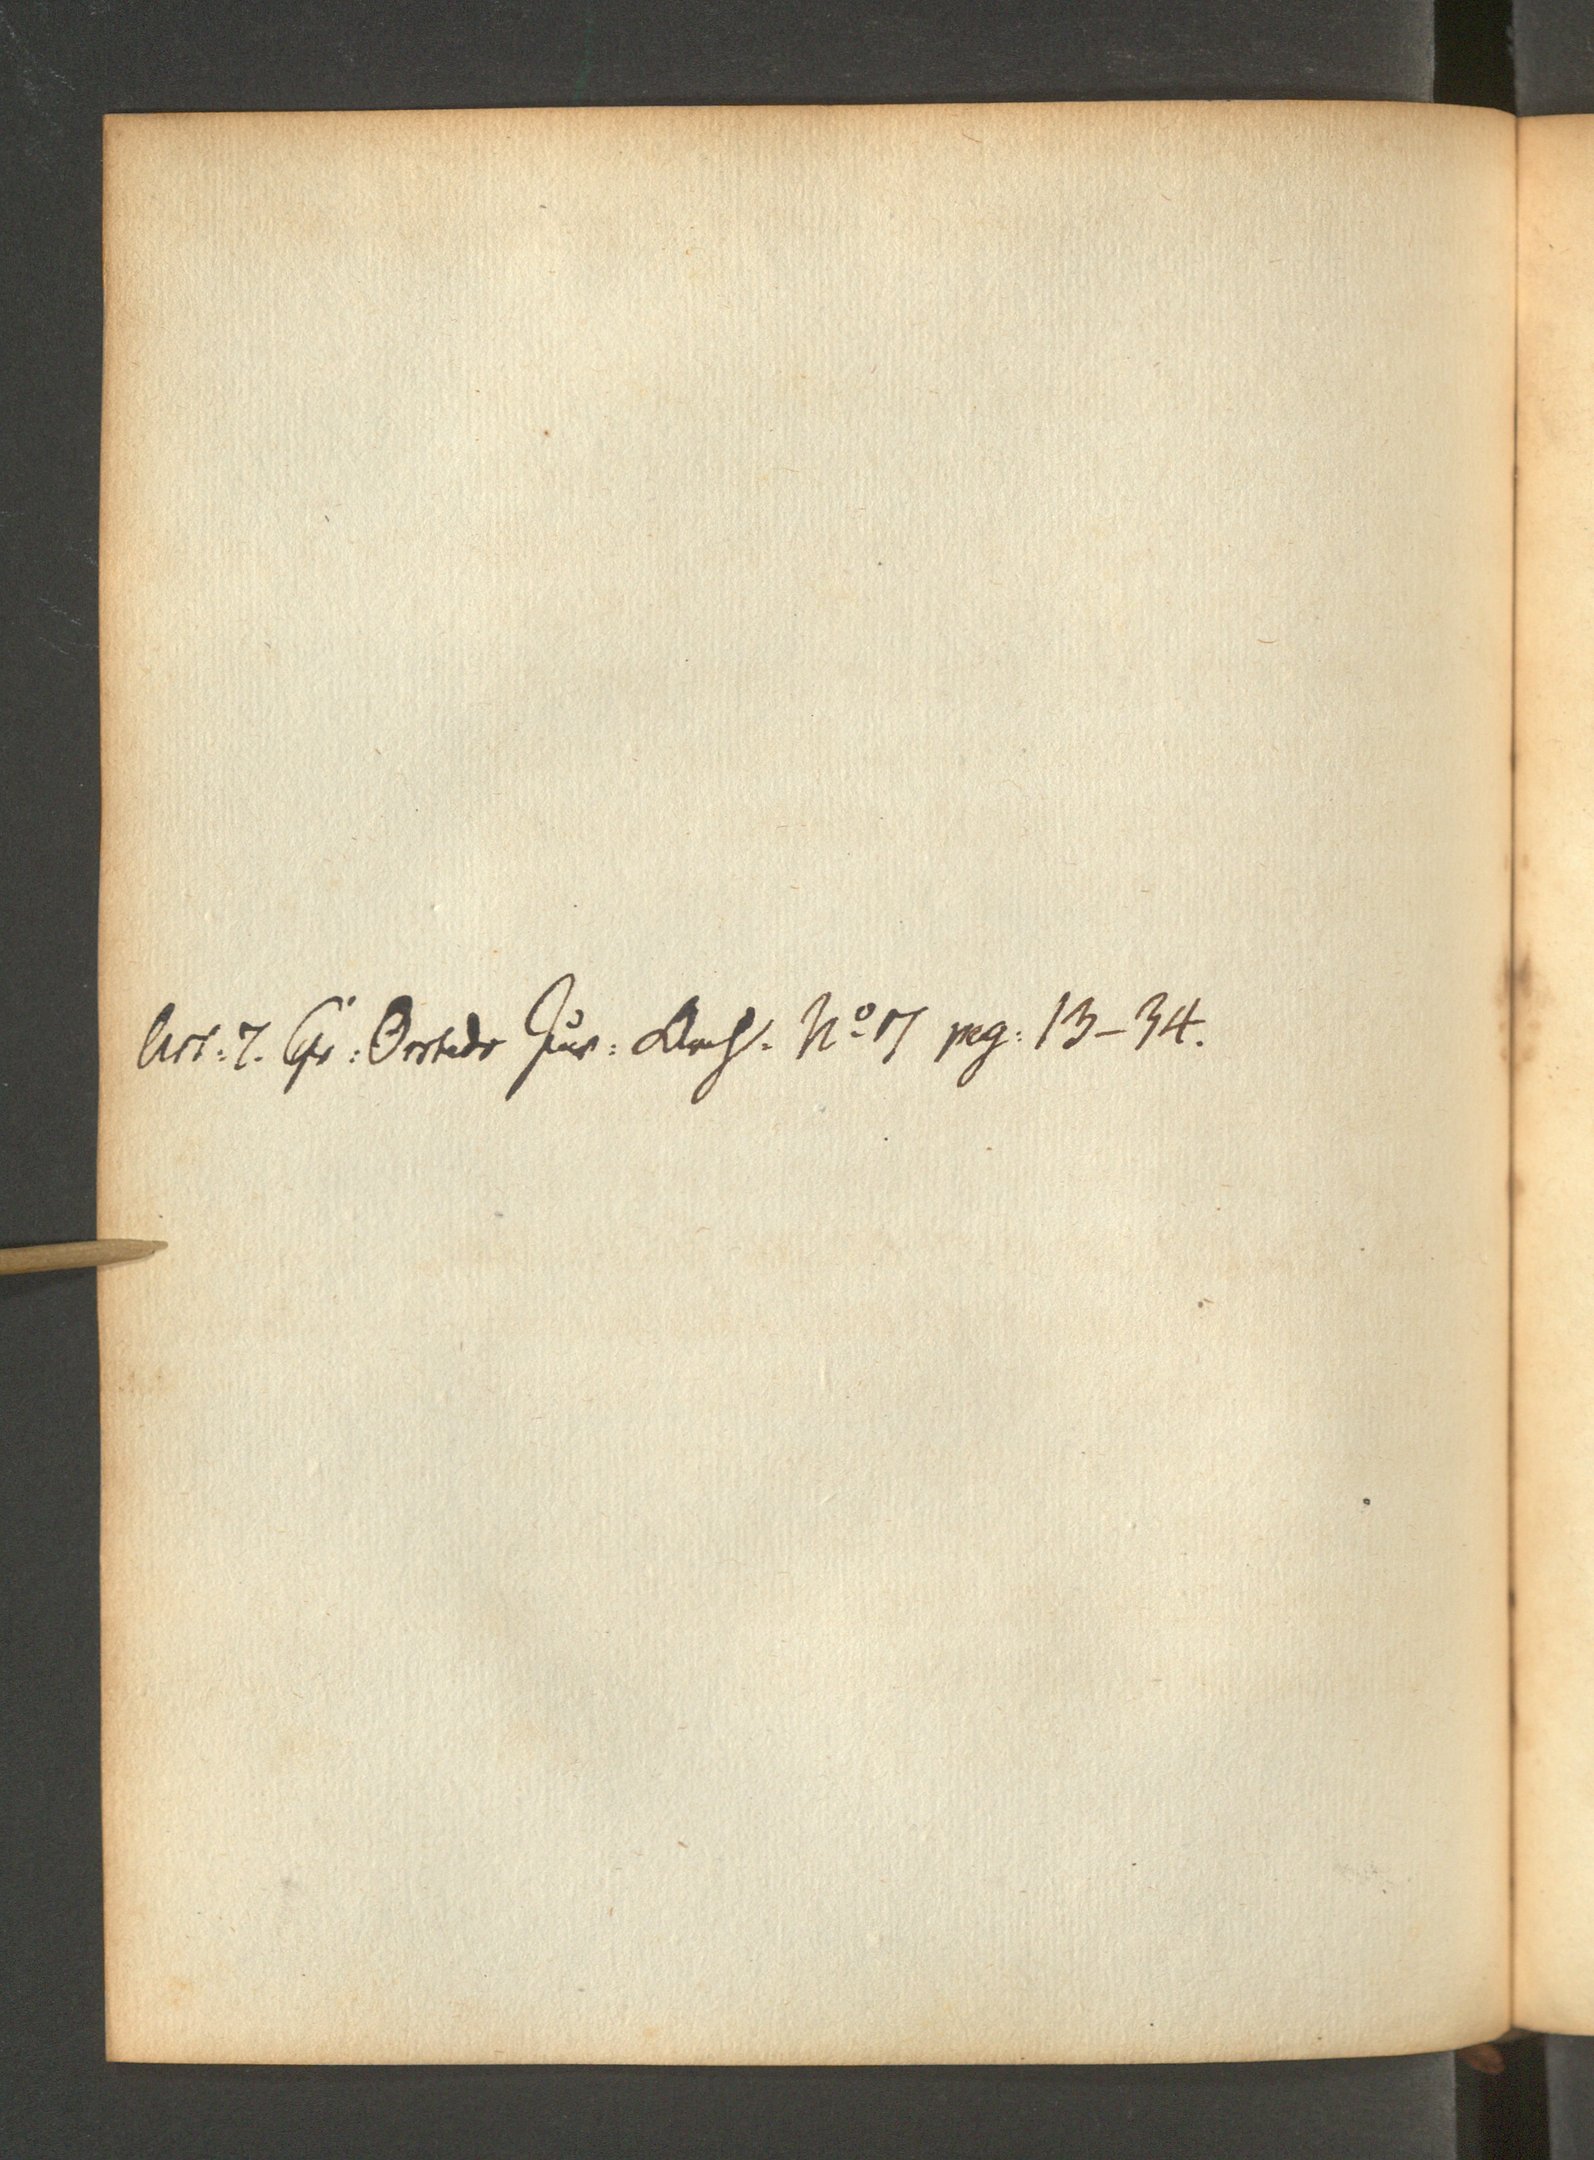 Art: 7. Cfr: Ørsteds Jur: Arch: No 17 pag: 13-34.